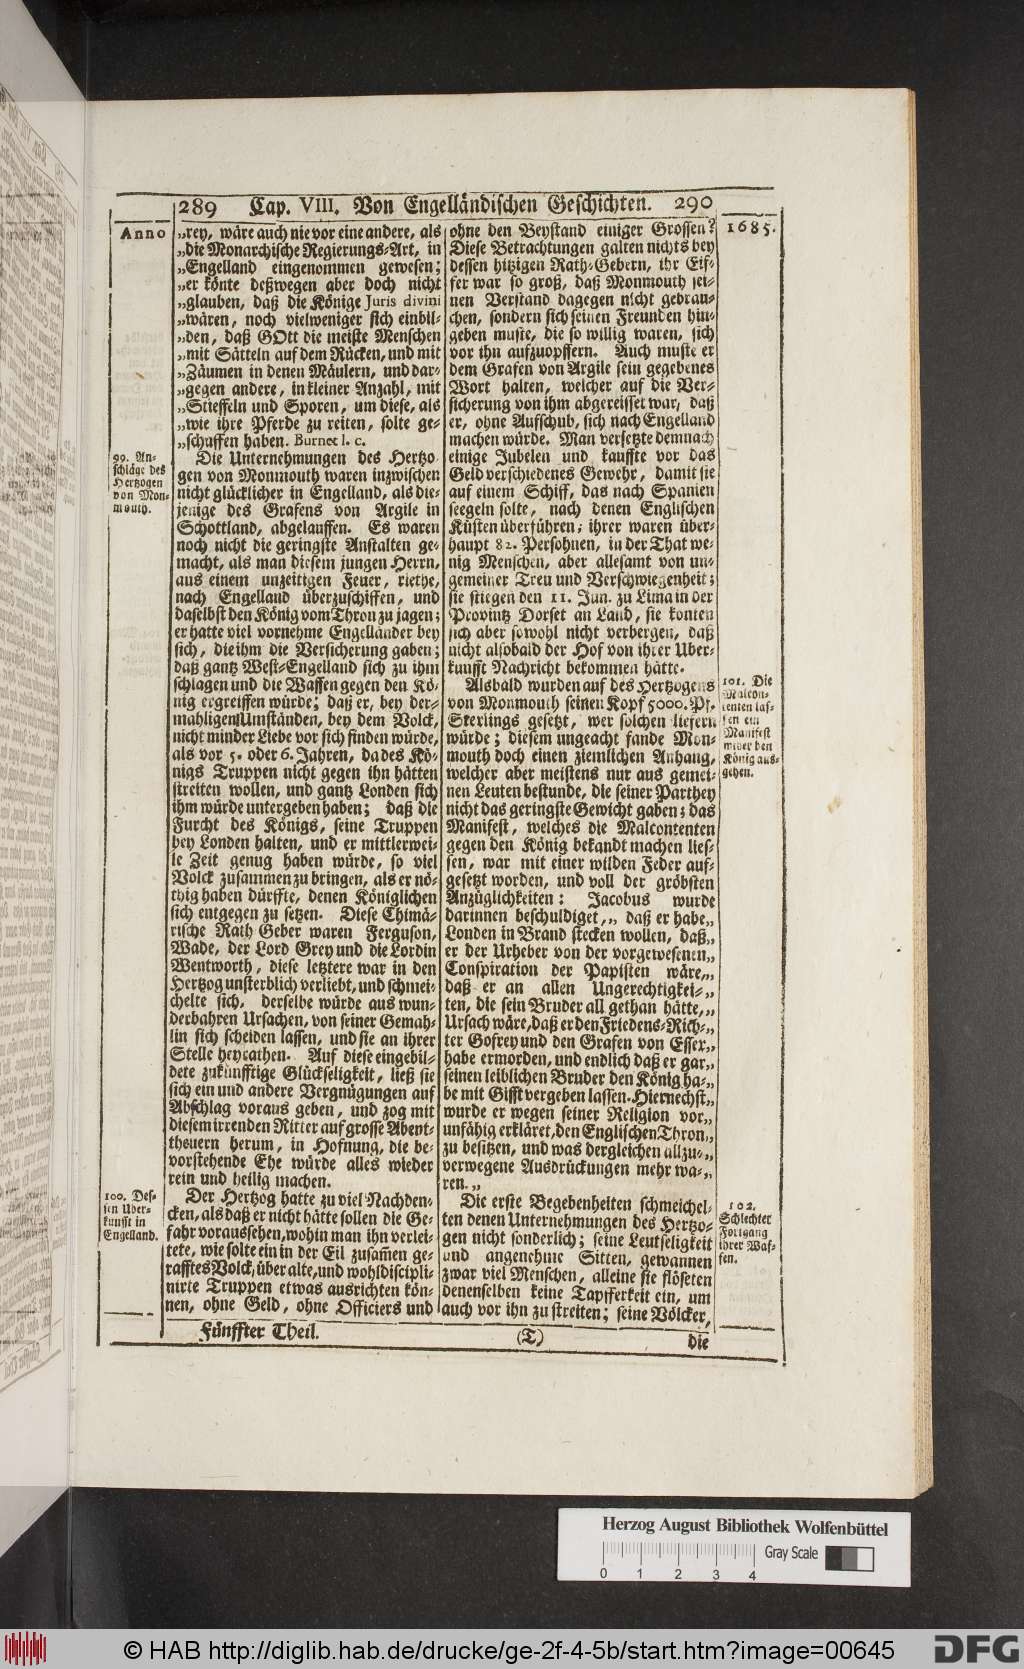 289 Cap. VIII. Von Engelländischen Geschichten. 290
Anno
„rey, wäre auch nie vor eine andere, als
„die Monarchische Regierungs-Art, in
„Engelland eingenommen gewesen;
„er könte deßwegen aber doch nicht
„glauben, daß die Könige Juris divini
„wären, noch vielweniger sich einbil-
„den, daß GOtt die meiste Menschen
„mit Sätteln auf dem Rücken, und mit
„Zäumen in denen Mäulern, und dar-
„gegen andere, in kleiner Anzahl, mit
„Stieffeln und Sporen, um diese, als
„wie ihre Pferde zu reiten, solte ge-
„schaffen haben. Burnet l. c.
99. An-
schläge des
Hertzogen
von Mon-
mouth.
Die Unternehmungen des Hertzo
gen von Monmouth waren inzwischen
nicht glücklicher in Engelland, als die-
jenige des Grafens von Argile in
Schottland, abgelauffen. Es waren
noch nicht die geringste Anstalten ge-
macht, als man diesem jungen Herrn,
aus einem unzeitigen Feuer, riethe,
nach Engelland überzuschiffen, und
daselbst den König vom Thron zu jagen;
er hatte viel vornehme Engelländer bey
sich, die ihm die Versicherung gaben;
daß gantz West-Engelland sich zu ihm
schlagen und die Waffen gegen den Kö-
nig ergreiffen würde; daß er, bey der-
mahligen Umständen, bey dem Volck,
nicht minder Liebe vor sich finden würde,
als vor 5. oder 6. Jahren, da des Kö-
nigs Truppen nicht gegen ihn hätten
streiten wollen, und gantz Londen sich
ihm würde untergeben haben; daß die
Furcht des Königs, seine Truppen
bey Londen halten, und er mittlerwei-
le Zeit genug haben würde, so viel
Volck zusammen zu bringen, als er nö-
thig haben dürffte, denen Königlichen
sich entgegen zu setzen. Diese Chimä-
rische Rath Geber waren Ferguson,
Wade, der Lord Grey und die Lordin
Wentworth, diese letztere war in den
Hertzog unsterblich verliebt, und schmei-
chelte sich, derselbe würde aus wun-
derbahren Ursachen, von seiner Gemah-
lin sich scheiden lassen, und sie an ihrer
Stelle heyrathen. Auf diese eingebil-
dete zukünfftige Glückseligkeit, ließ sie
sich ein und andere Vergnügungen auf
Abschlag voraus geben, und zog mit
diesem irrenden Ritter auf grosse Abent-
theuern herum, in Hofnung, die be-
vorstehende Ehe würde alles wieder
rein und heilig machen.
100. Des-
sen Uber-
kunfft in
Engelland.
Der Hertzog hatte zu viel Nachden-
cken, als daß er nicht hätte sollen die Ge-
fahr voraussehen, wohin man ihn verlei-
tete, wie solte ein in der Eil zusam̃en ge-
rafftes Volck, über alte, und wohldiscipli-
nirte Truppen etwas ausrichten kön-
nen, ohne Geld, ohne Officiers und
1685.
ohne den Beystand einiger Grossen?
Diese Betrachtungen galten nichts bey
dessen hitzigen Rath-Gebern, ihr Eif-
fer war so groß, daß Monmouth sei-
nen Verstand dagegen nicht gebrau-
chen, sondern sich seinen Freunden hin-
geben muste, die so willig waren, sich
vor ihn aufzuopffern. Auch muste er
dem Grafen von Argile sein gegebenes
Wort halten, welcher auf die Ver-
sicherung von ihm abgereisset war, daß
er, ohne Aufschub, sich nach Engelland
machen würde. Man versetzte demnach
einige Jubelen und kauffte vor das
Geld verschiedenes Gewehr, damit sie
auf einem Schiff, das nach Spanien
seegeln solte, nach denen Englischen
Küsten überführen; ihrer waren über-
haupt 82. Persohnen, in der That we-
nig Menschen, aber allesamt von un-
gemeiner Treu und Verschwiegenheit;
sie stiegen den 11. Jun. zu Lima in der
Provintz Dorset an Land, sie konten
sich aber sowohl nicht verbergen, daß
nicht alsobald der Hof von ihrer Uber-
kunfft Nachricht bekommen hätte.
101. Die
Malcon-
tenten las-
sen ein
Manifest
wider den
König aus-
gehen.
Alsbald wurden auf des Hertzogens
von Monmouth seinen Kopf 5000. Pf.
Sterlings gesetzt, wer solchen liefern
würde; diesem ungeacht fande Mon-
mouth doch einen ziemlichen Anhang,
welcher aber meistens nur aus gemei-
nen Leuten bestunde, die seiner Parthey
nicht das geringste Gewicht gaben; das
Manifest, welches die Malcontenten
gegen den König bekandt machen lies-
sen, war mit einer wilden Feder auf-
gesetzt worden, und voll der gröbsten
Anzüglichkeiten: Jacobus wurde
darinnen beschuldiget,„ daß er habe„
Londen in Brand stecken wollen, daß„
er der Urheber von der vorgewesenen„
Conspiration der Papisten wäre,„
daß er an allen Ungerechtigkei-„
ten, die sein Bruder all gethan hätte,„
Ursach wäre, daß er den Friedens-Rich-„
ter Gofrey und den Grafen von Essex„
habe ermorden, und endlich daß er gar„
seinen leiblichen Bruder den König ha-„
be mit Gifft vergeben lassen. Hiernechst„
wurde er wegen seiner Religion vor„
unfähig erkläret, den Englischen Thron„
zu besitzen, und was dergleichen allzu-„
verwegene Ausdrückungen mehr wa-„
ren.„
102.
Schlechter
Fortgang
ihrer Waf-
fen.
Die erste Begebenheiten schmeichel-
ten denen Unternehmungen des Hertzo-
gen nicht sonderlich; seine Leutseligkeit
und angenehme Sitten, gewannen
zwar viel Menschen, alleine sie flöseten
denenselben keine Tapfferkeit ein, um
auch vor ihn zu streiten; seine Völcker,
Fünffter Theil. (T) die
Herzog August Bibliothek Wolfenbüttel
0 1 2 3 4
Gray Scale
© HAB http://diglib.hab.de/drucke/ge-2f-4-5b/start.htm?image=00645
DFG